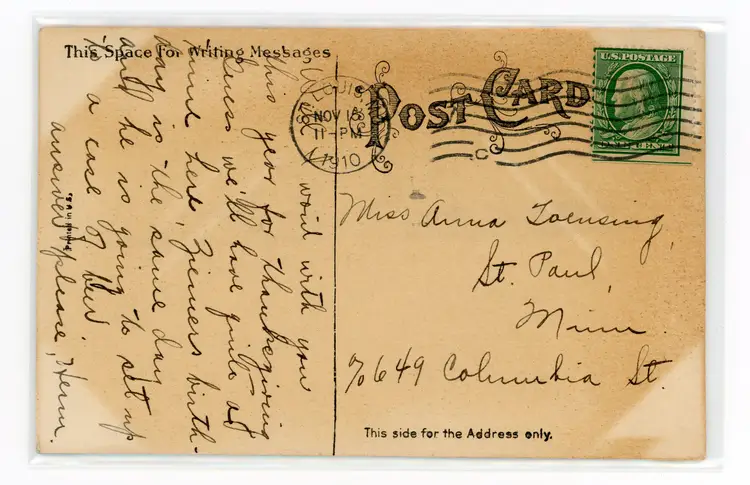 This Space for Writing Messages
word with you
this year for thanksgiving
Guess we'll have quite a
time here, Ziemers birth-
day is the same day
and he is going to set up
to a case of beer.
answer please, Herm.
Printed in U.S.A.
Post Card
LOUIS
NOV 18
11-PM
1910
U.S. POSTAGE
Miss Anna Toensing,
St. Paul,
Minn.
℅ 649 Columbia St.
This side for the Address only.